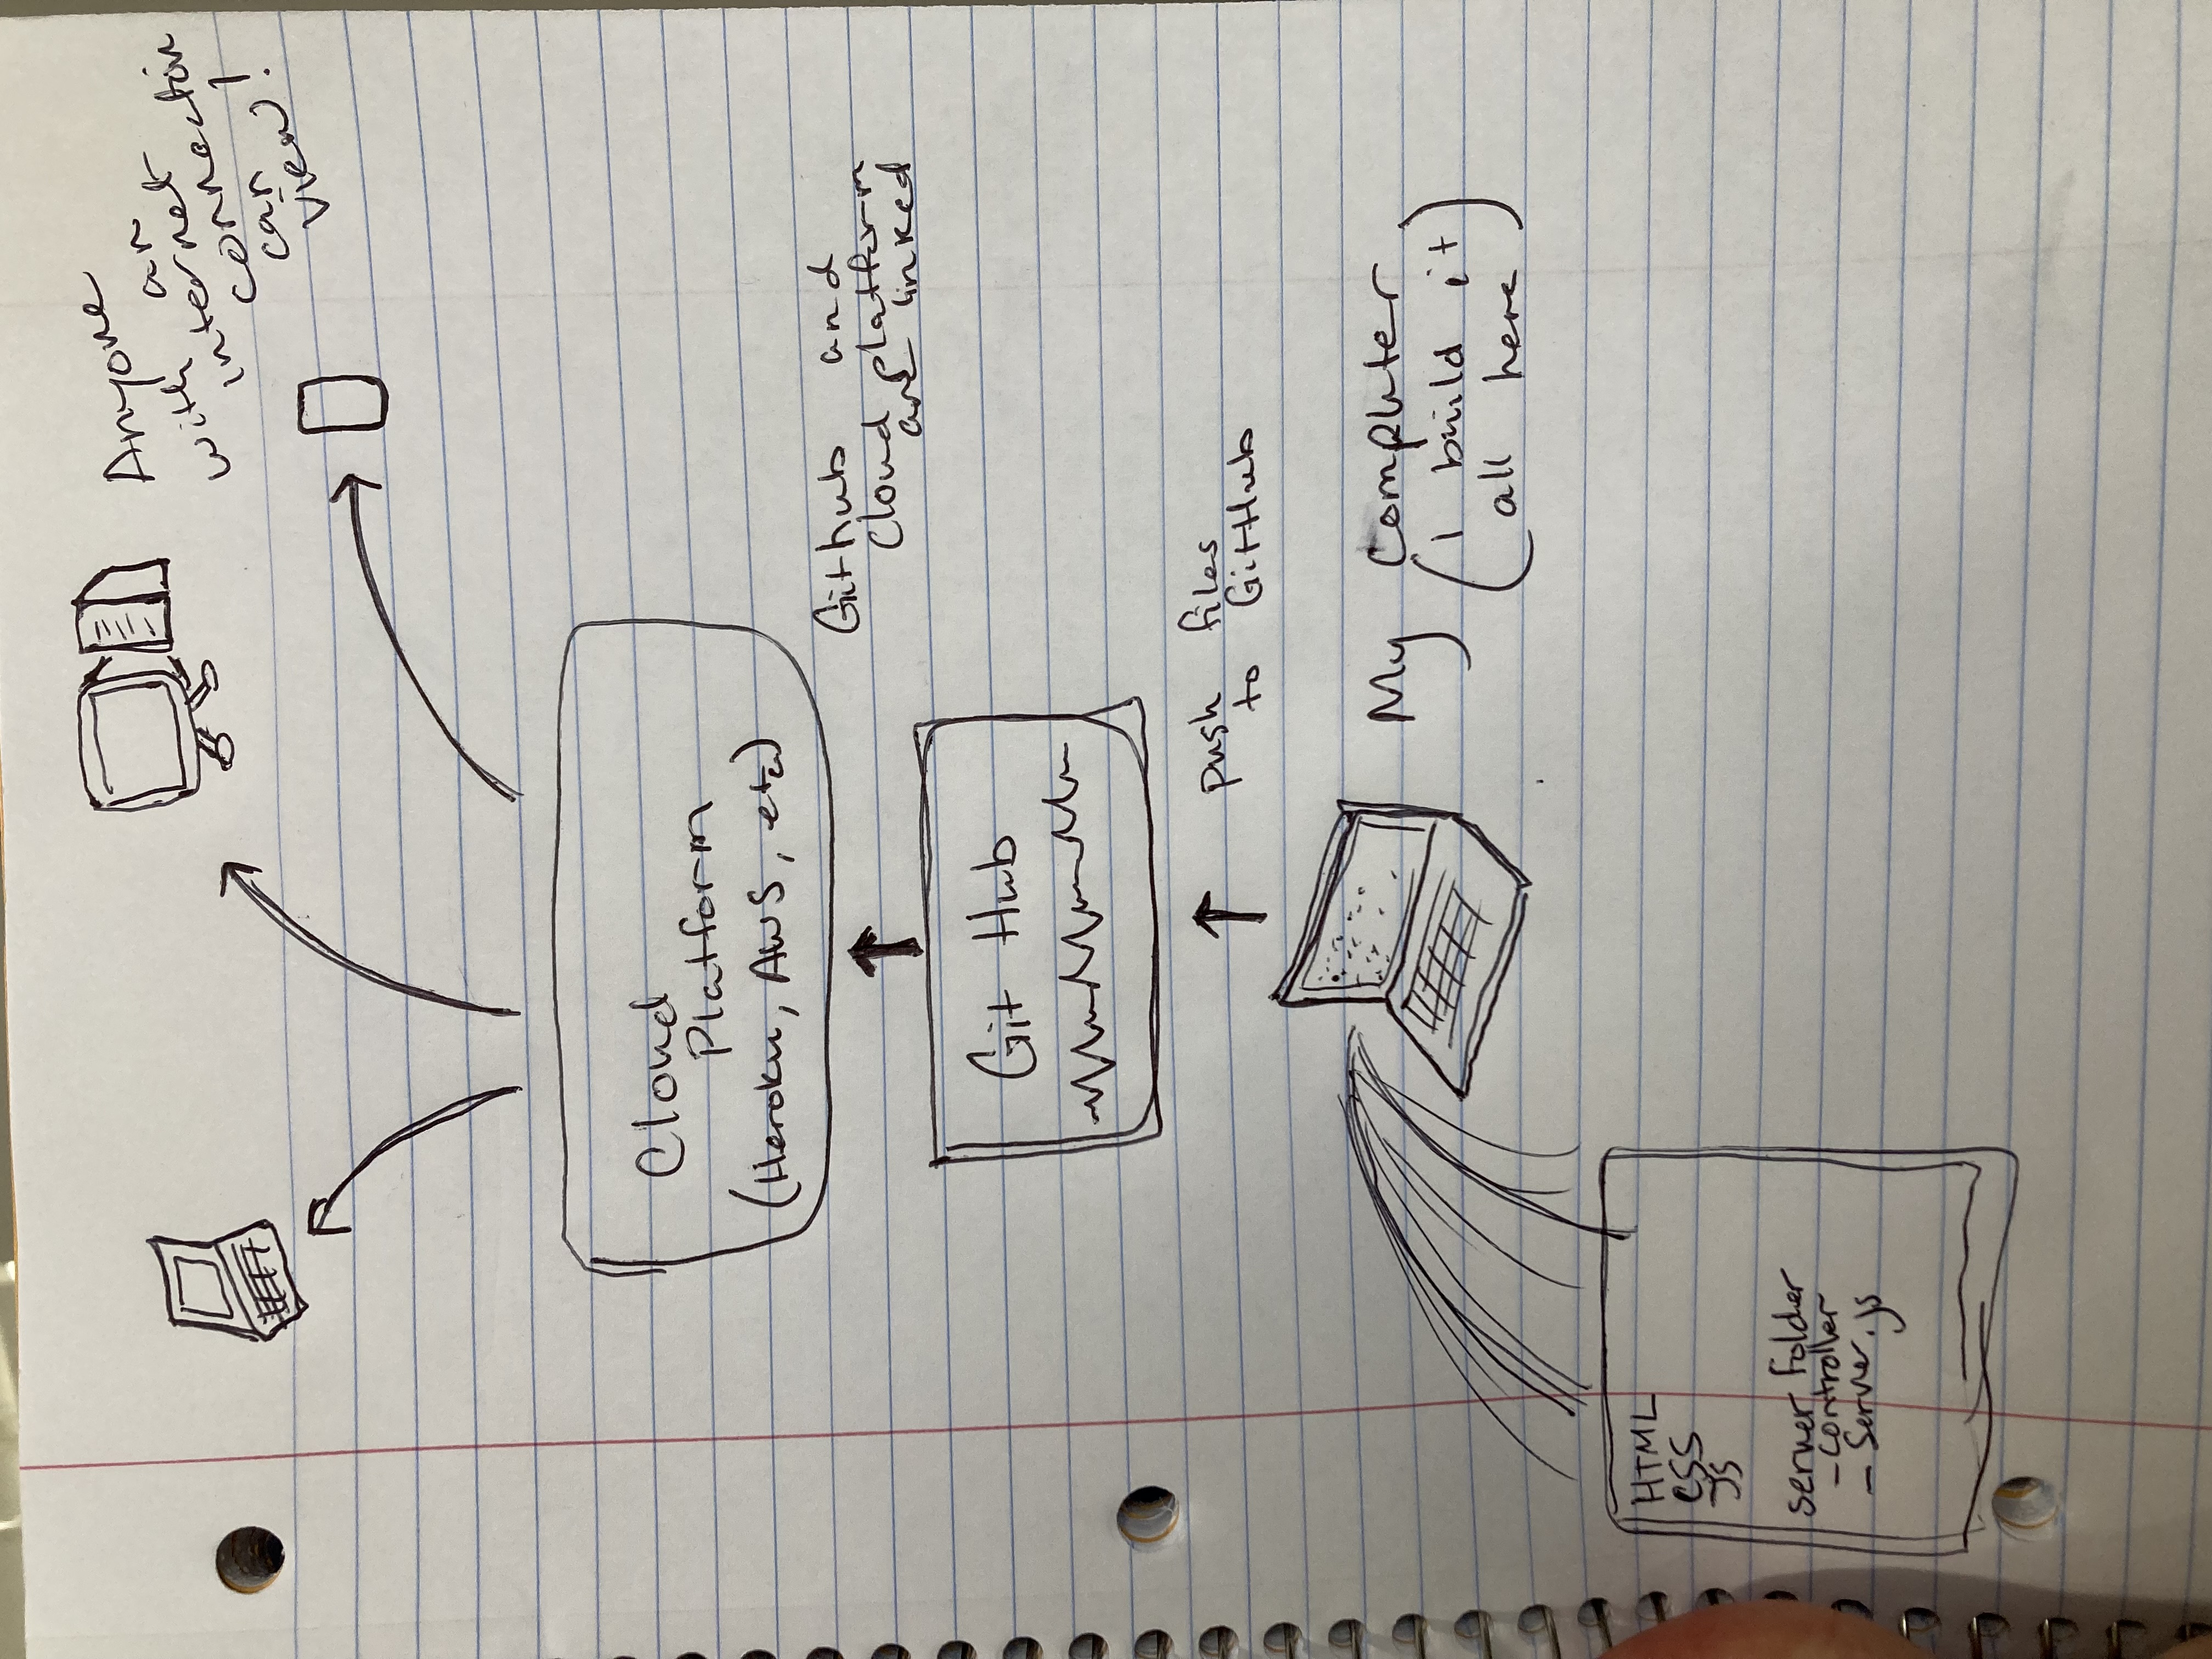 Anyone
with an
internet
connection
can
view!
Cloud
Platform
(Heroku, AWS, etc)
Github and
cloud platform
are linked
Git Hub
push files
to GitHub
My Computer
(I build it
all here)
HTML
CSS
JS
server folder
- controller
- Server.js